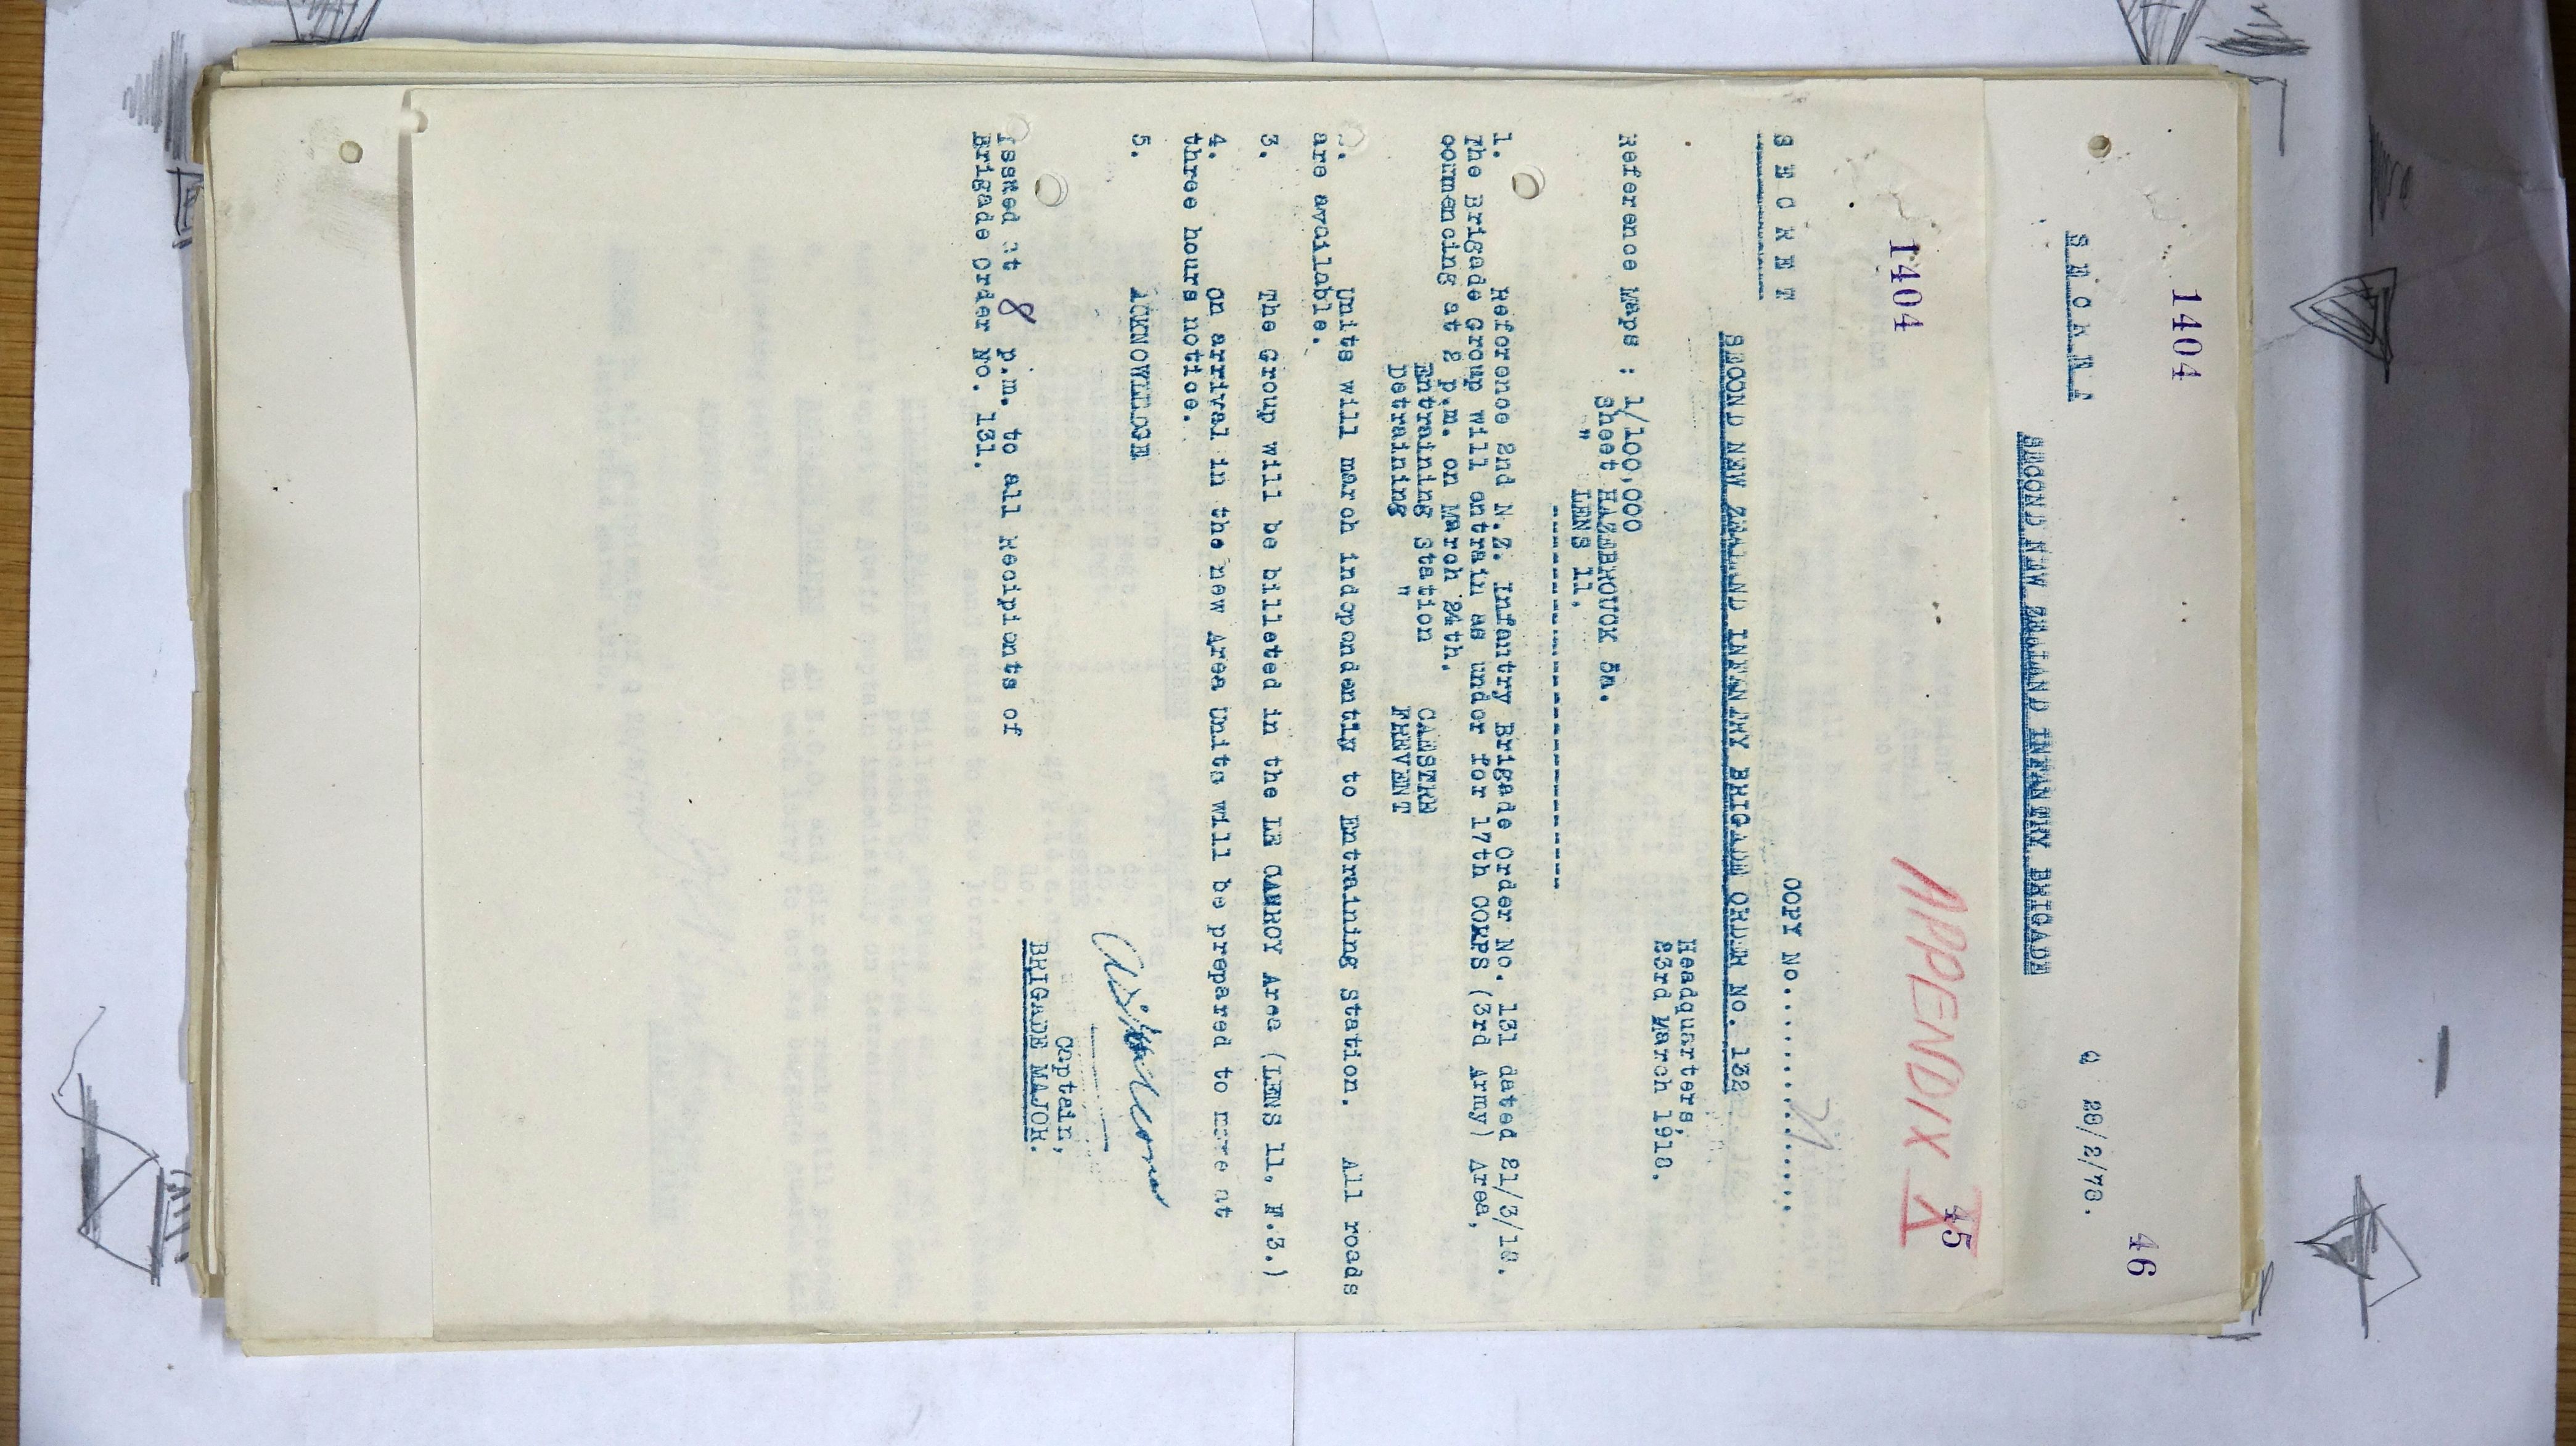 1404
46
S E C R E T
Q 28/2/78.
SECOND NEW ZEALAND INFANTRY BRIGADE
1404
APPENDIX X
45
S E C R E T
COPY No.
SECOND NEW ZEALAND INFANTRY BRIGADE ORDER NO. 132
Headquarters,
23rd March 1918.
Reference Maps : 1/100,000
Sheet HAZEBROUCK 5a.
" LENS 11.
1. Reference 2nd N.Z. Infantry Brigade Order No. 131 dated 21/3/18.
The Brigade Group will entrain as under for 17th CORPS (3rd Army) Area,
commencing at 9 p.m. on March 24th.
Entraining Station CAESTRE
Detraining " FREVENT
2. Units will march independently to Entraining Station. All roads
are available.
3. The Group will be billeted in the LE CAUROY Area (LENS 11. F.3.)
4. On arrival in the new Area Units will be prepared to move at
three hours notice.
5. ACKNOWLEDGE
Captain,
BRIGADE MAJOR.
Issued at 8 p.m. to all Recipients of
Brigade Order No. 131.